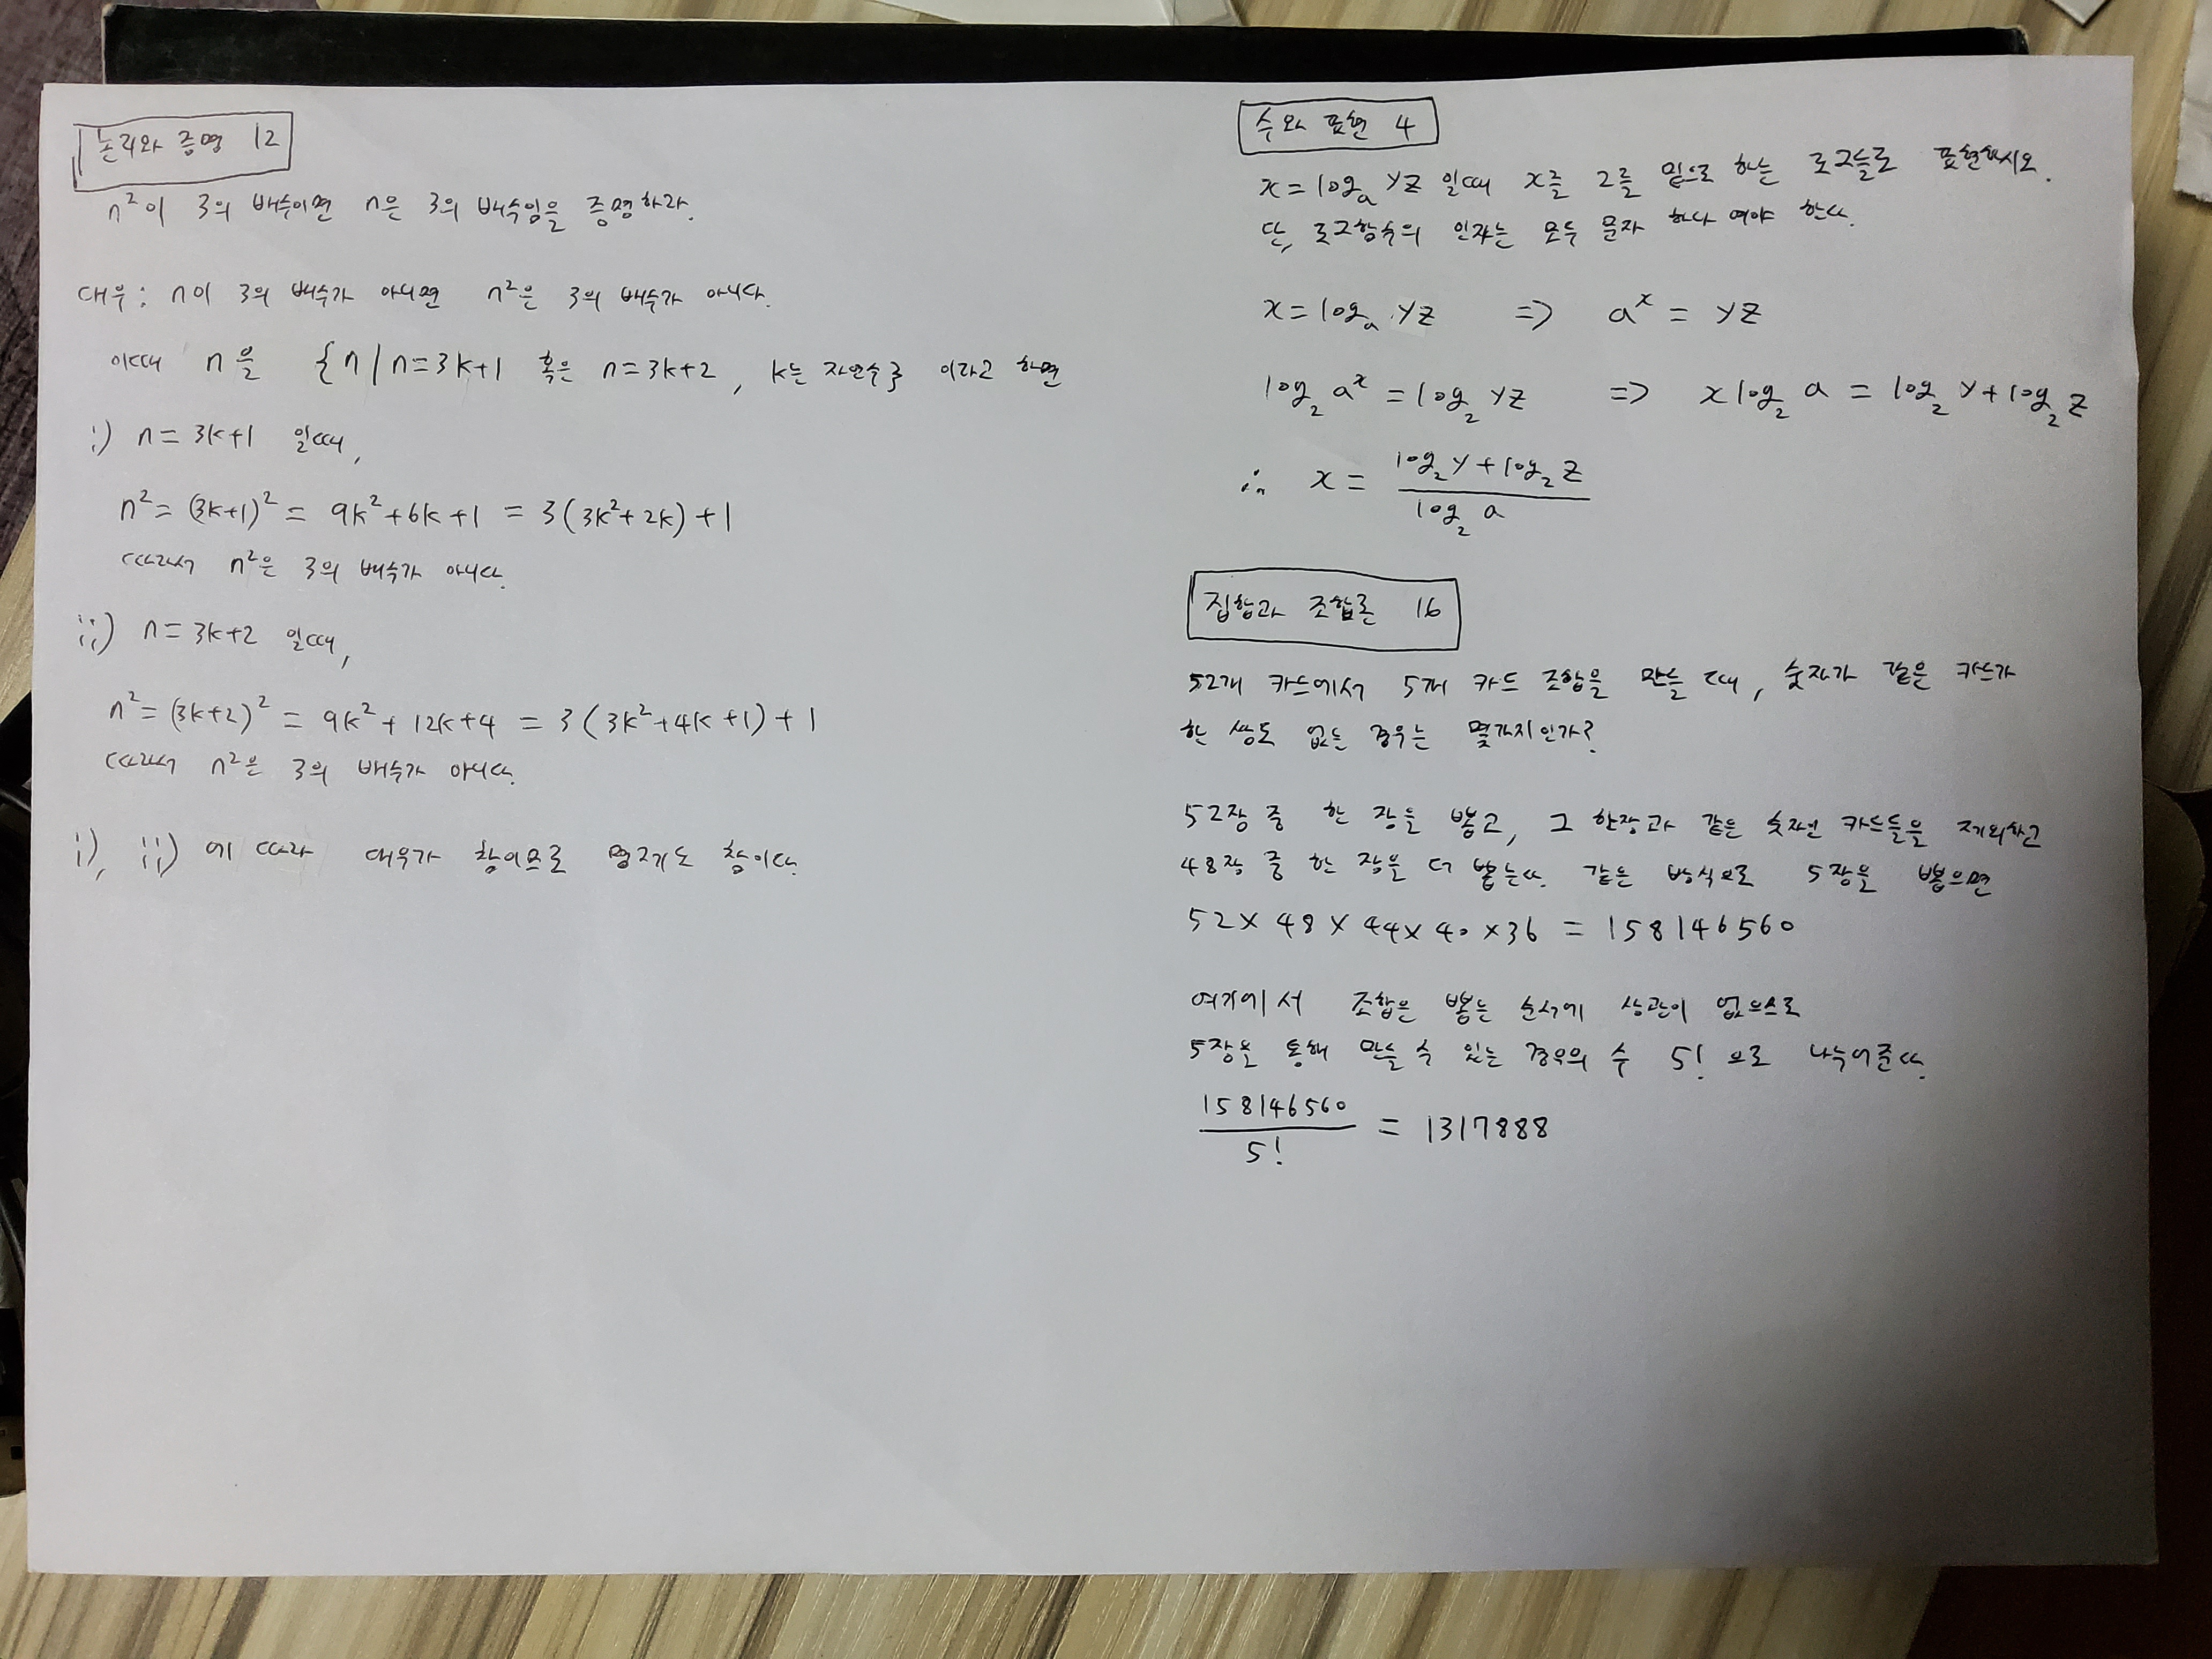 논리와 증명 12
n²이 3의 배수이면 n은 3의 배수임을 증명하라.
대우: n이 3의 배수가 아니면 n²은 3의 배수가 아니다.
이때, n을 {n | n=3k+1 혹은 n=3k+2, k는 자연수} 이라고 하면
i) n=3k+1 일때,
n² = (3k+1)² = 9k²+6k+1 = 3(3k²+2k)+1
따라서 n²은 3의 배수가 아니다.
ii) n=3k+2 일때,
n² = (3k+2)² = 9k²+12k+4 = 3(3k²+4k+1)+1
따라서 n²은 3의 배수가 아니다.
i), ii) 에 따라 대우가 참이므로 명제도 참이다.
수와 표현 4
x=logₐ yz 일때 x를 2를 밑으로 하는 로그들로 표현하시오.
단, 로그함수의 인자는 모두 문자 하나 여야 한다.
x=logₐ yz ⇒ aˣ = yz
log₂ aˣ = log₂ yz ⇒ x log₂ a = log₂ y + log₂ z
∴ x = (log₂ y + log₂ z) / log₂ a
집합과 조합론 16
52개 카드에서 5개 카드 조합을 만들 때, 숫자가 같은 카드가
한 쌍도 없는 경우는 몇가지인가?
52장 중 한 장을 뽑고, 그 한장과 같은 숫자인 카드들을 제외하고
48장 중 한 장을 더 뽑는다. 같은 방식으로 5장을 뽑으면
52 × 48 × 44 × 40 × 36 = 158146560
여기에서 조합은 뽑는 순서에 상관이 없으므로
5장을 통해 만들 수 있는 경우의 수 5! 으로 나누어준다.
158146560 / 5! = 1317888